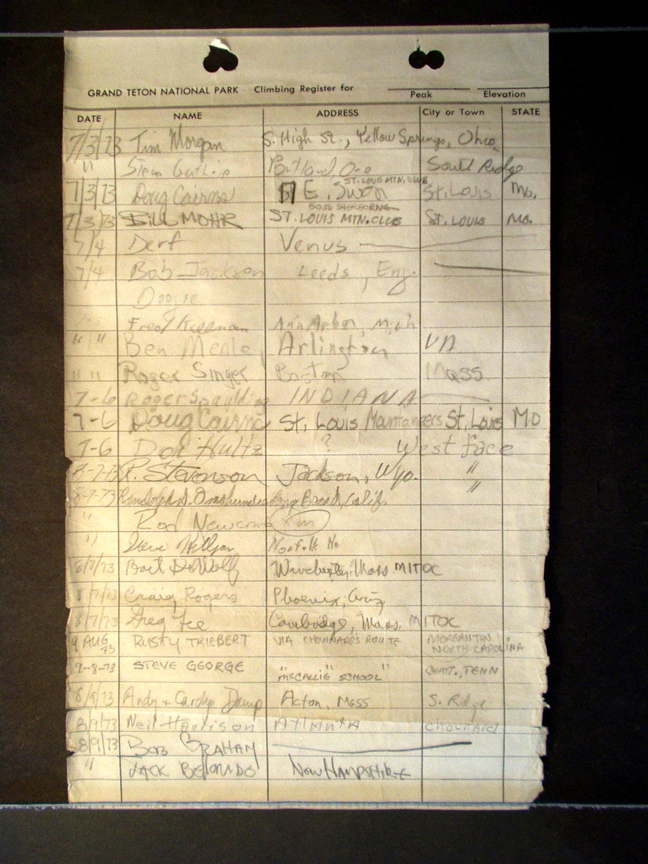 GRAND TETON NATIONAL PARK Climbing Register for
Peak Elevation
DATE NAME ADDRESS City or Town STATE
7/3/73 Tim Morgan S. High St., Yellow Springs, Ohio
" Steve Portland, Ore South Ridge
ST. LOUIS MTN. CLUB
7/3/73 Doug Cairns E. Swon St. Louis Mo.
7/3/73 BILL MOHR ST. LOUIS MTN. CLUB ST. LOUIS Mo.
7/4 Derf Venus
7/4 Bob Jackson Leeds, Eng.
Fred Ann Arbor, Mich
" " Ben Arlington VA
" " Roger Singer Boston Mass
7-6 Roger Spaulding INDIANA
7-6 Doug Cairns St. Louis Mountaineers St. Louis MO
7-6 Don Hultz ? West face
R. Stevenson Jackson, Wyo. "
Calif. "
" Rod
" Norfolk
Bart DeWolf Mass MITOC
8/7/73 Craig Rogers Phoenix, Ariz
8/7/73 Greg Cambridge, Mass. MITOC
9 AUG 73 RUSTY TRIEBERT VIA CHOUINARD'S ROUTE MORGANTON
NORTH CAROLINA
9-8-73 STEVE GEORGE "McCALLIE SCHOOL" CHATT., TENN
8/9/73 Andy + Carolyn Acton, Mass S. Ridge
8/9/73 Neil Harrison Atlanta
8/9/73 Bob GRAHAM
" JACK NEW HAMPSHIRE